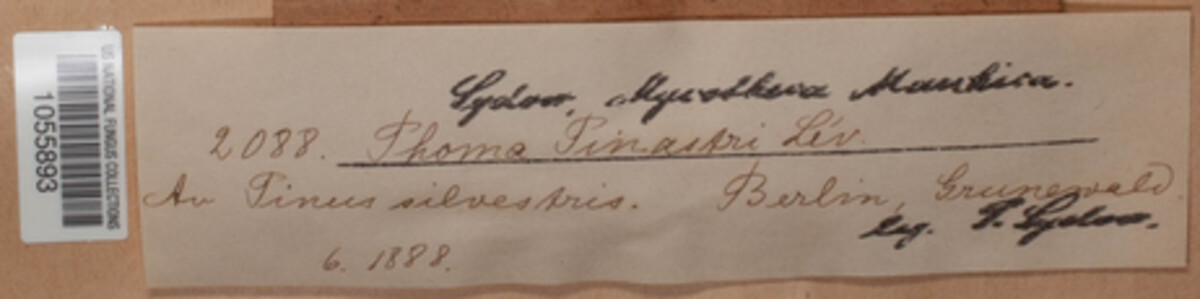 US NATIONAL FUNGUS COLLECTIONS
1055893
Sydow, Mycotheca Marchica.
2088. Phoma Pinastri Lév.
Au Pinus silvestris. Berlin, Grunewald
leg. P. Sydow.
6. 1888.